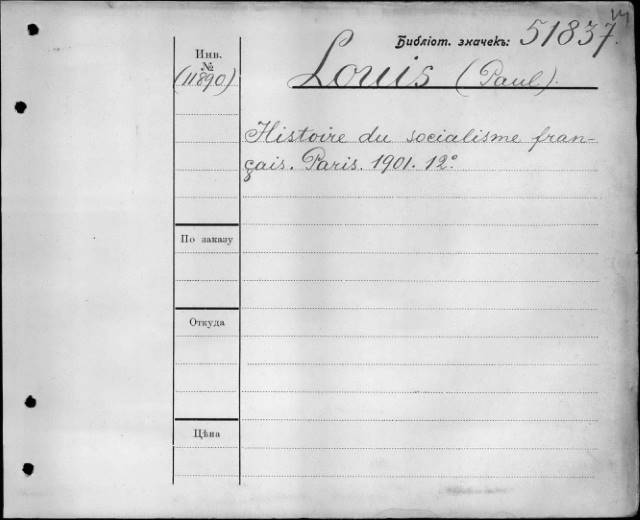 Библіот. значекъ: 51837.
Инв.
№
(11890)
Louis (Paul).
Histoire du socialisme fran-
çais. Paris. 1901. 12°
По заказу
Откуда
Цѣна